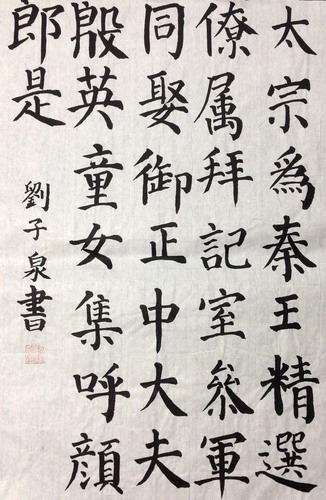 太宗爲秦王精選
僚属拜記室叅軍
同娶御正中大夫
殷英童女集呼顔
郎是
劉子泉書